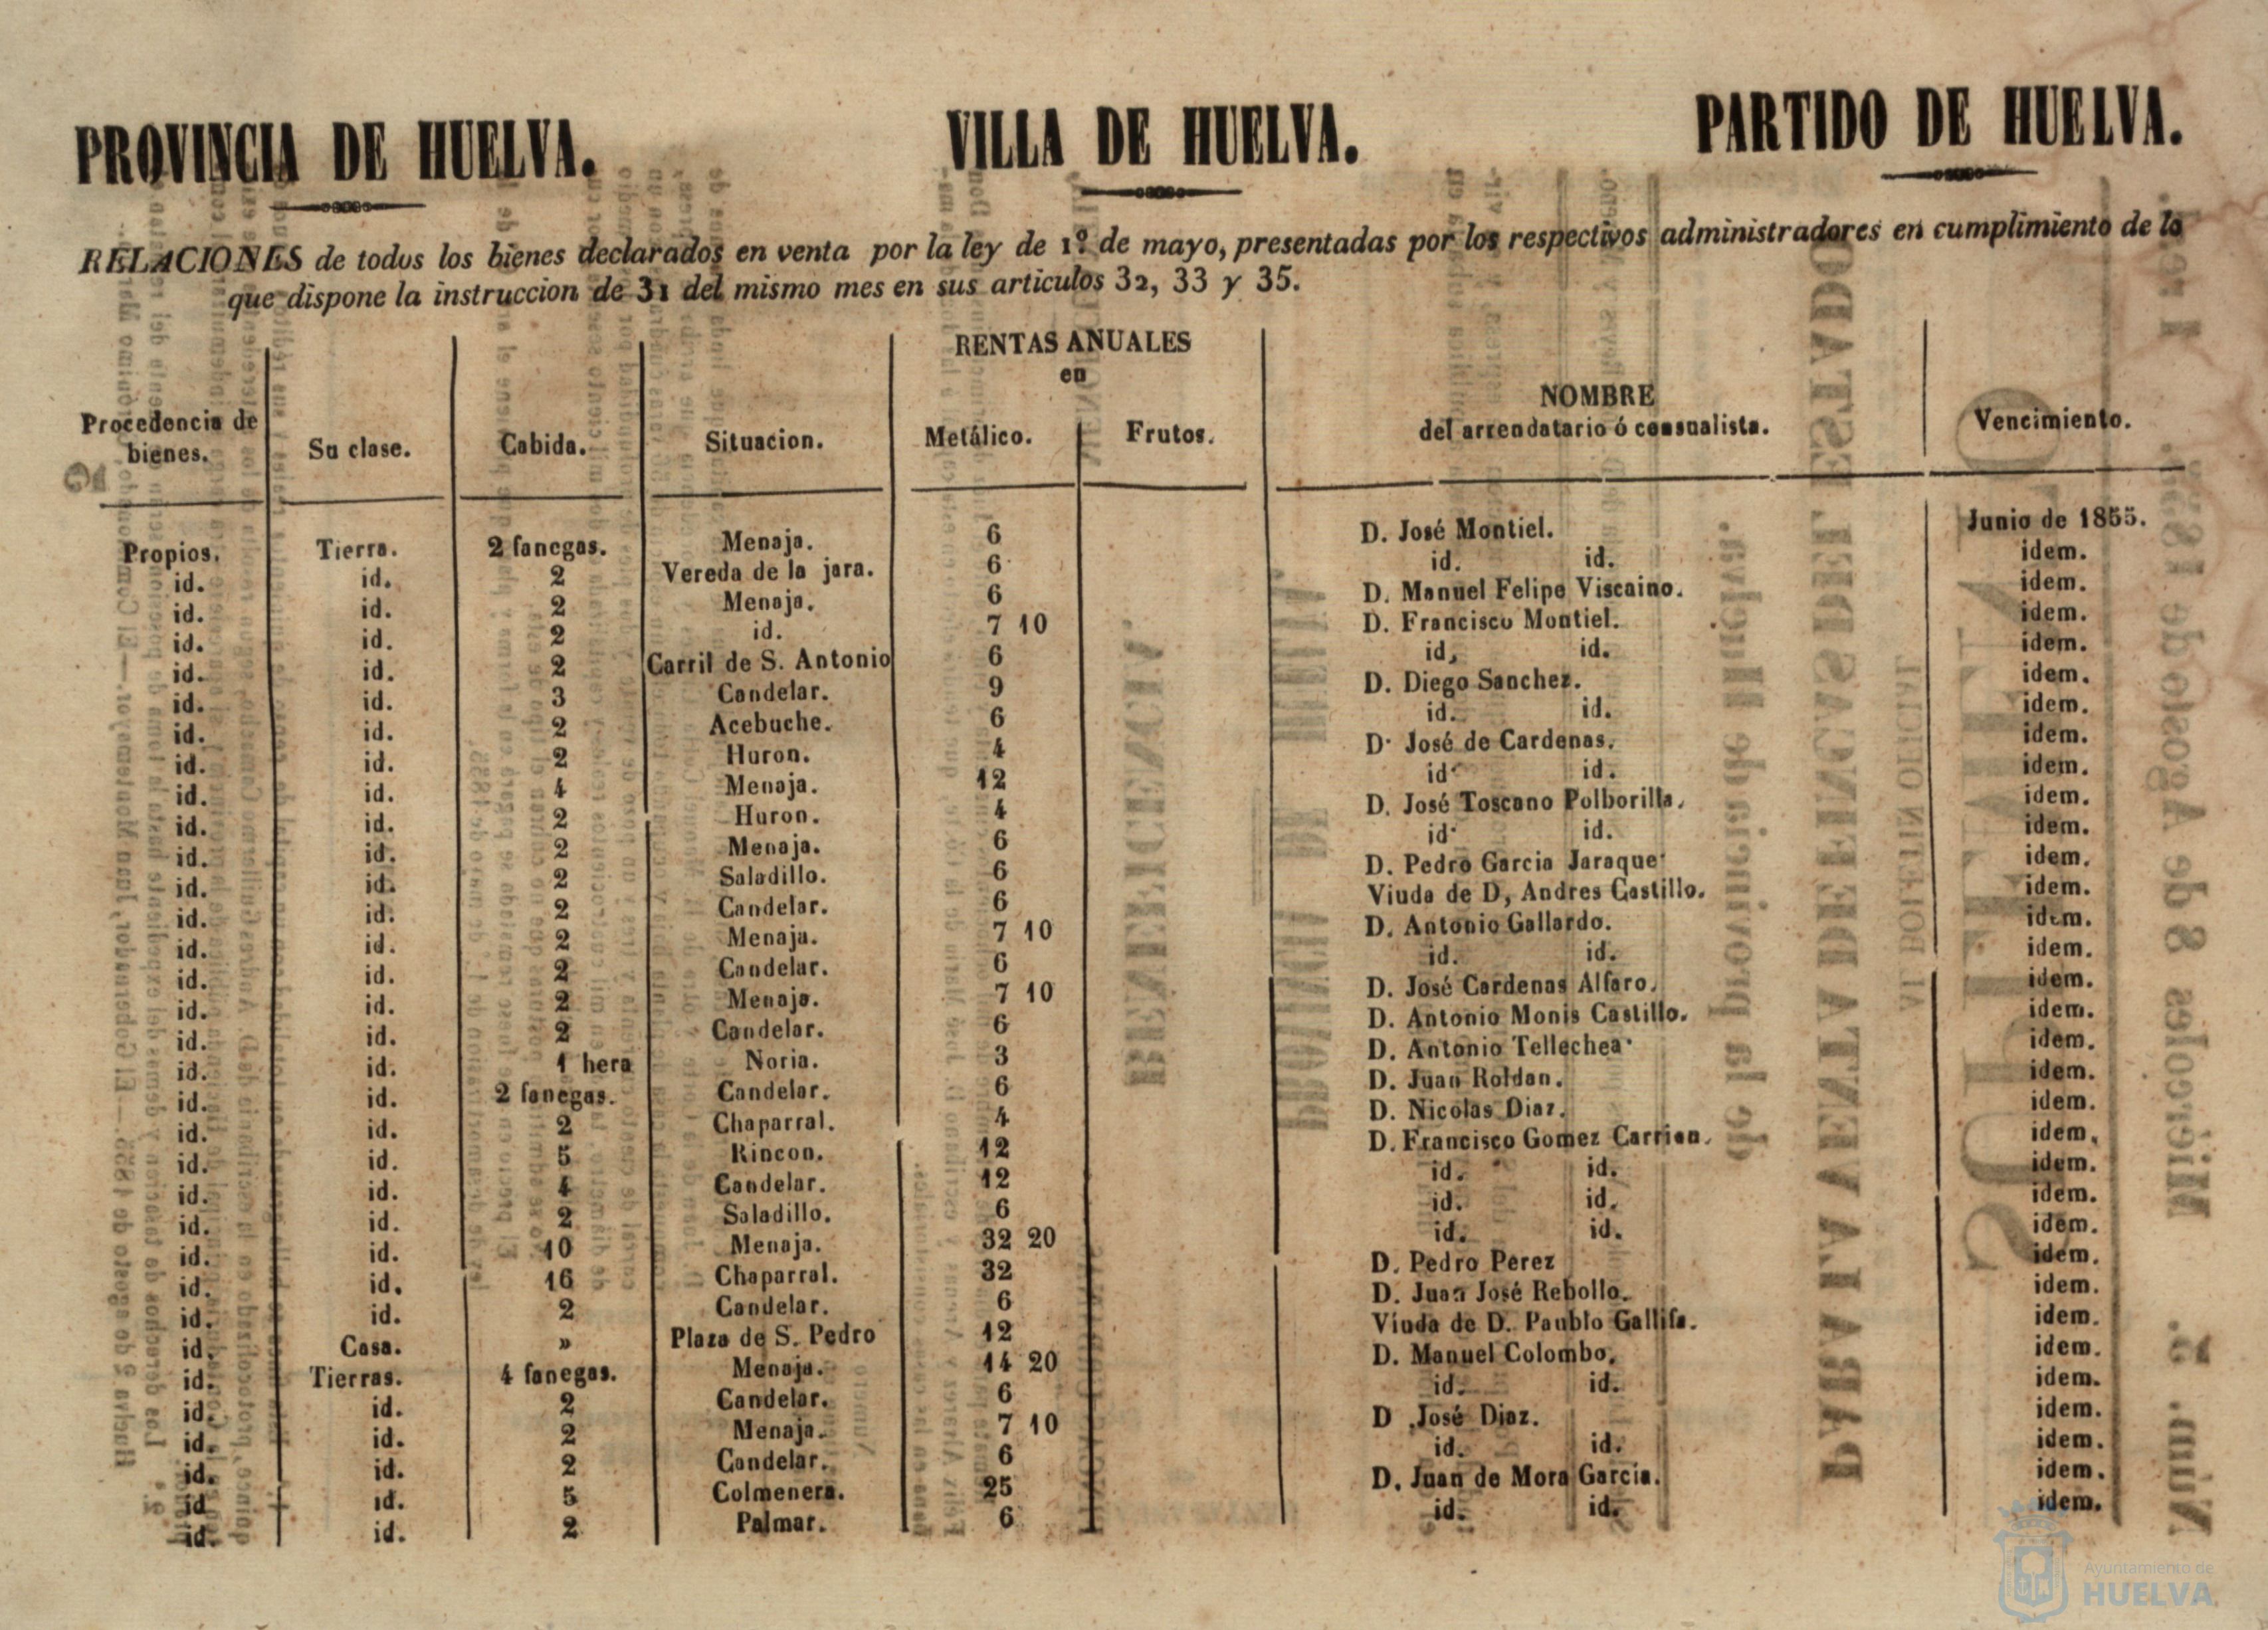 PROVINCIA DE HUELVA. VILLA DE HUELVA. PARTIDO DE HUELVA.
RELACIONES de todos los bienes declarados en venta por la ley de 1º. de mayo, presentadas por los respectivos administradores en cumplimiento de lo
que dispone la instruccion de 31 del mismo mes en sus articulos 32, 33 y 35.
RENTAS ANUALES
en
Procedencia de bienes. Su clase. Cabida. Situacion. Metálico. Frutos. NOMBRE del arrendatario ó censualista. Vencimiento.
Propios. Tierra. 2 fanegas. Menaja. 6 D. José Montiel. Junio de 1855.
id. id. 2 Vereda de la jara. 6 id. id. idem.
id. id. 2 Menaja. 6 D. Manuel Felipe Viscaino. idem.
id. id. 2 id. 7 10 D. Francisco Montiel. idem.
id. id. 2 Carril de S. Antonio 6 id, id. idem.
id. id. 3 Candelar. 9 D. Diego Sanchez. idem.
id. id. 2 Acebuche. 6 id. id. idem.
id. id. 2 Huron. 4 D. José de Cardenas. idem.
id. id. 4 Menaja. 12 id. id. idem.
id. id. 2 Huron. 4 D. José Toscano Polborilla. idem.
id. id. 2 Menaja. 6 id. id. idem.
id. id. 2 Saladillo. 6 D. Pedro Garcia Jaraque. idem.
id. id. 2 Candelar. 6 Viuda de D, Andres Castillo. idem.
id. id. 2 Menaja. 7 10 D. Antonio Gallardo. idem.
id. id. 2 Candelar. 6 id. id. idem.
id. id. 2 Menaja. 7 10 D. José Cardenas Alfaro. idem.
id. id. 2 Candelar. 6 D. Antonio Monis Castillo. idem.
id. id. 1 hera Noria. 3 D. Antonio Tellechea. idem.
id. id. 2 fanegas. Candelar. 6 D. Juan Roldan. idem.
id. id. 2 Chaparral. 4 D. Nicolas Diaz. idem.
id. id. 5 Rincon. 12 D. Francisco Gomez Carrion. idem.
id. id. 4 Candelar. 12 id. id. idem.
id. id. 2 Saladillo. 6 id. id. idem.
id. id. 10 Menaja. 32 20 id. id. idem.
id. id. 16 Chaparral. 32 D. Pedro Perez idem.
id. id. 2 Candelar. 6 D. Juan José Rebollo. idem.
id. Casa. » Plaza de S. Pedro 12 Viuda de D. Paublo Gallifa. idem.
id. Tierras. 4 fanegas. Menaja. 14 20 D. Manuel Colombo. idem.
id. id. 2 Candelar. 6 id. id. idem.
id. id. 2 Menaja. 7 10 D .José Diaz. idem.
id. id. 2 Candelar. 6 id. id. idem.
id id. 5 Colmenera. 25 D. Juan de Mora García. idem.
id. id. 2 Palmar. 6 id. id. idem.
Ayuntamiento de
HUELVA